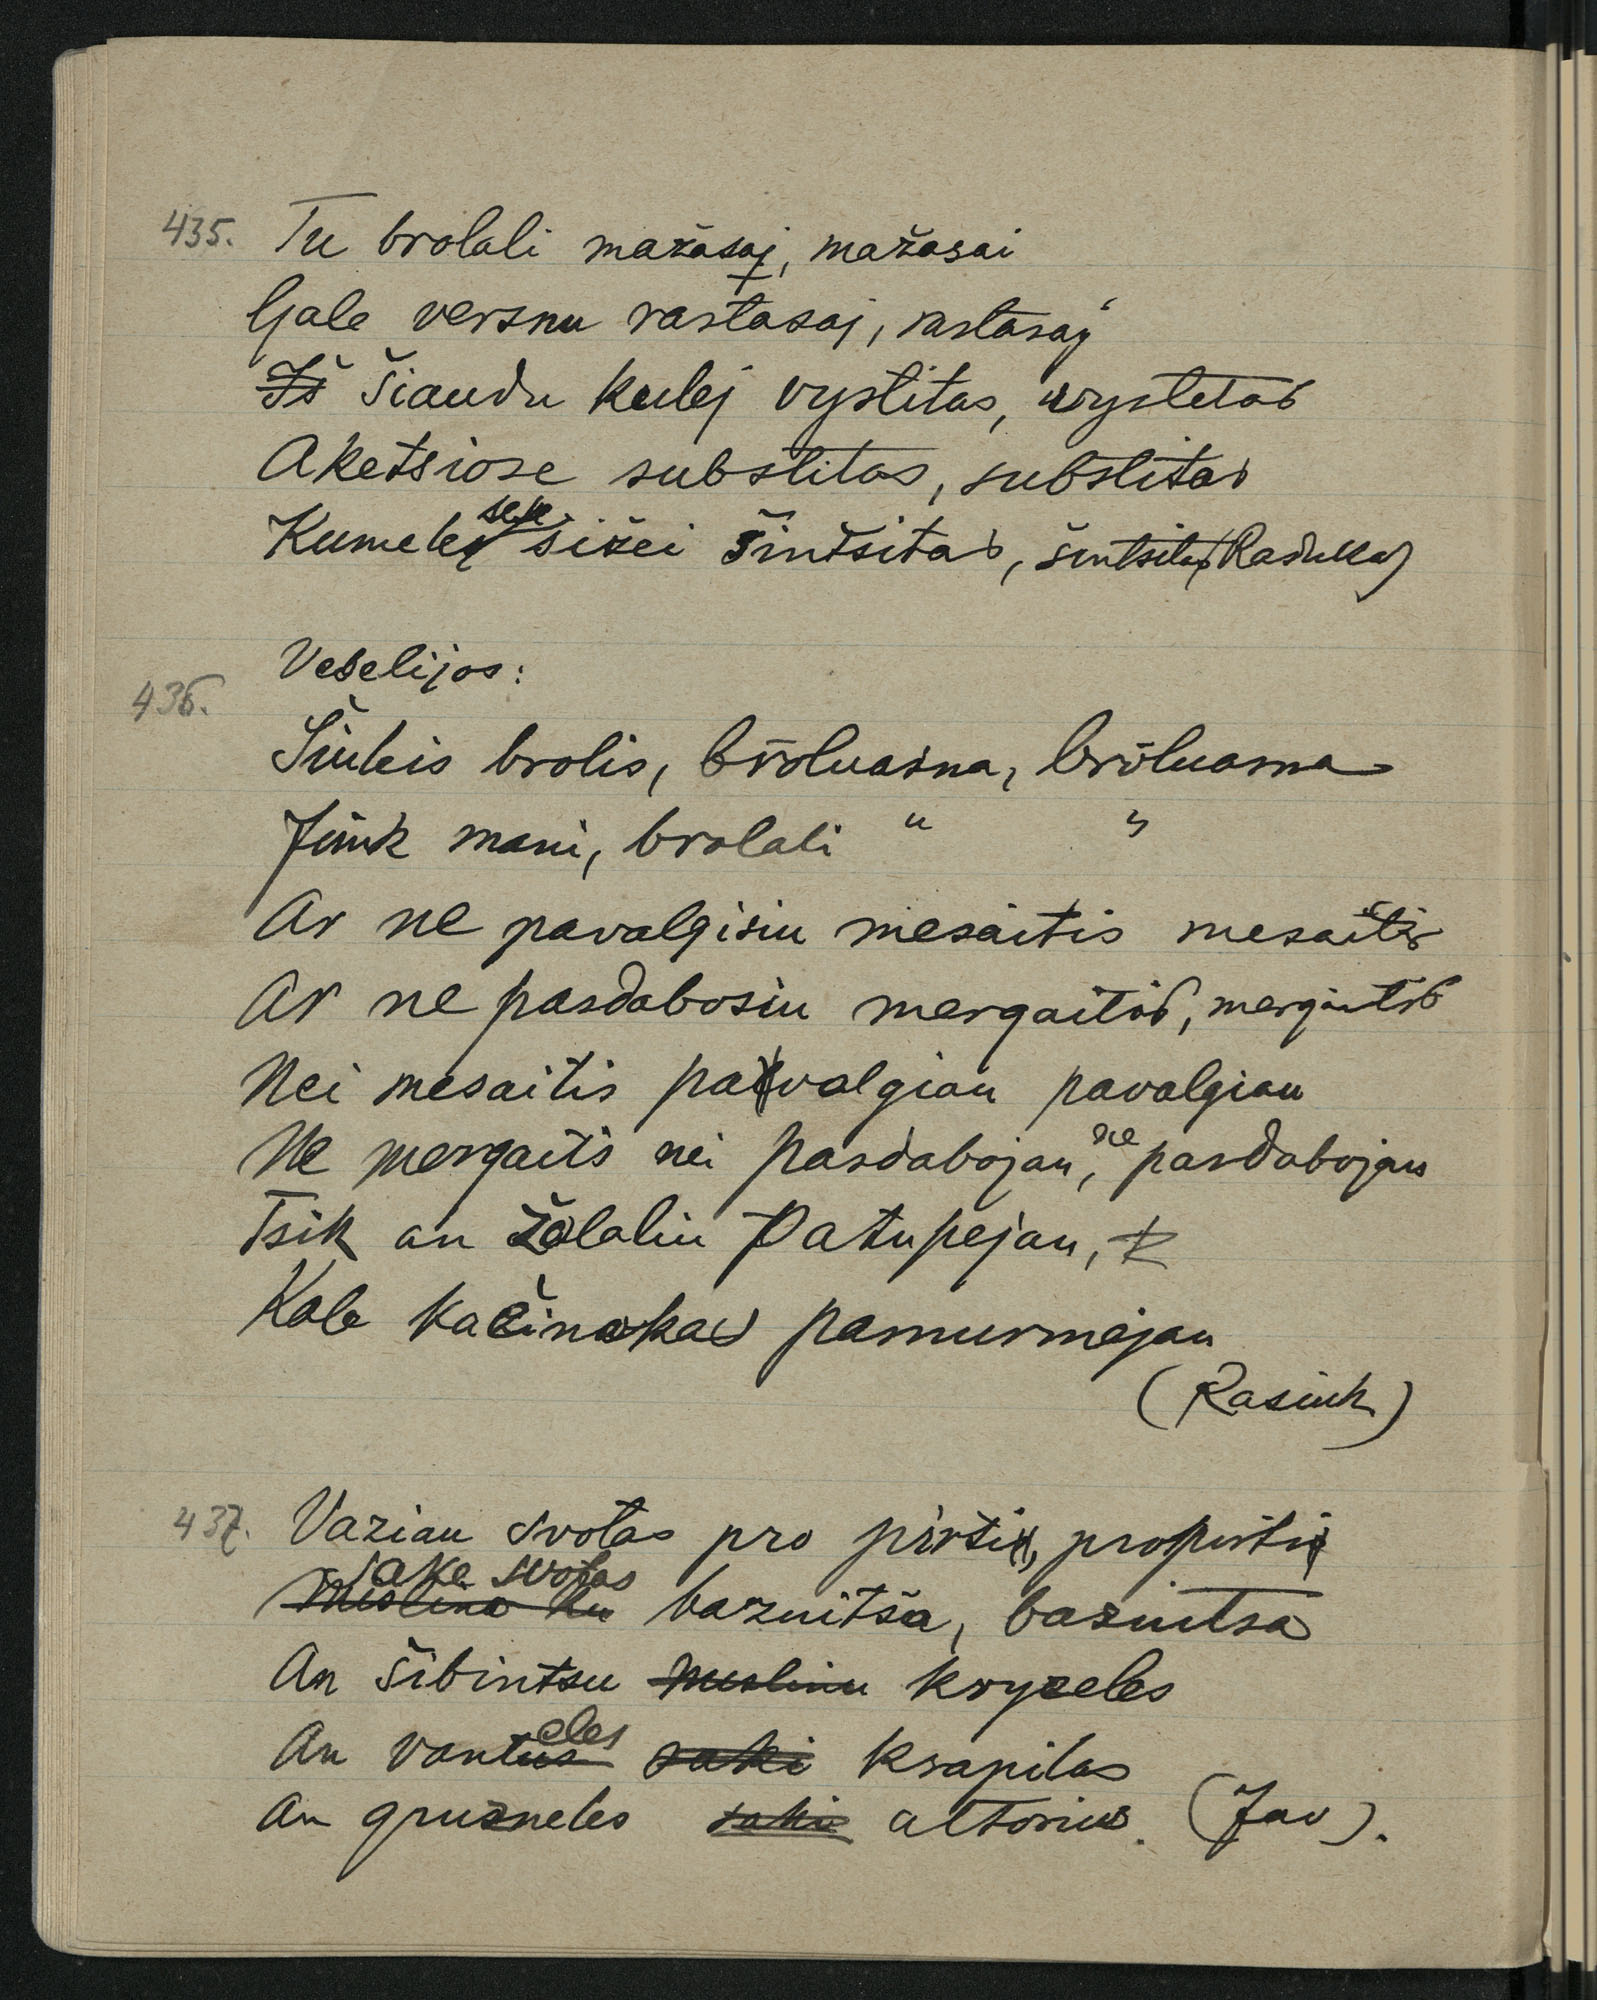 435. Tu brolali mažasaj, mažasai
Gale versnu rastasaj, rastasaj
Iš šiaudu kulej vystitas, vystetas
Aketsiose substitas, substitas
Kumele sižei šintsitas, šintsitas
Veselijos:
436.
Šiukis brolis, brōluasna, brōluasna
Jiink mani, brolali " "
Ar ne pavalgisiu mesaitis mesaitis
Ar ne pasdabosiu mergaitis, mergaitis
Nei mesaitis pavalgiau pavalgiau
Ne mergaits nei pasdabojau, ne pasdabojau
Tsik an žolaliu Patupejau,
Kale kačinokas pamurmejau
(Rasiuk)
437. Vaziau svotas pro pirti, propirti
sake svotas
mislina ku bazuitša, bazuitsa
An šibintsu muslinu kryzeles
eles
An vantus saki krapilas
An grusneles saki altorius. (Jav).